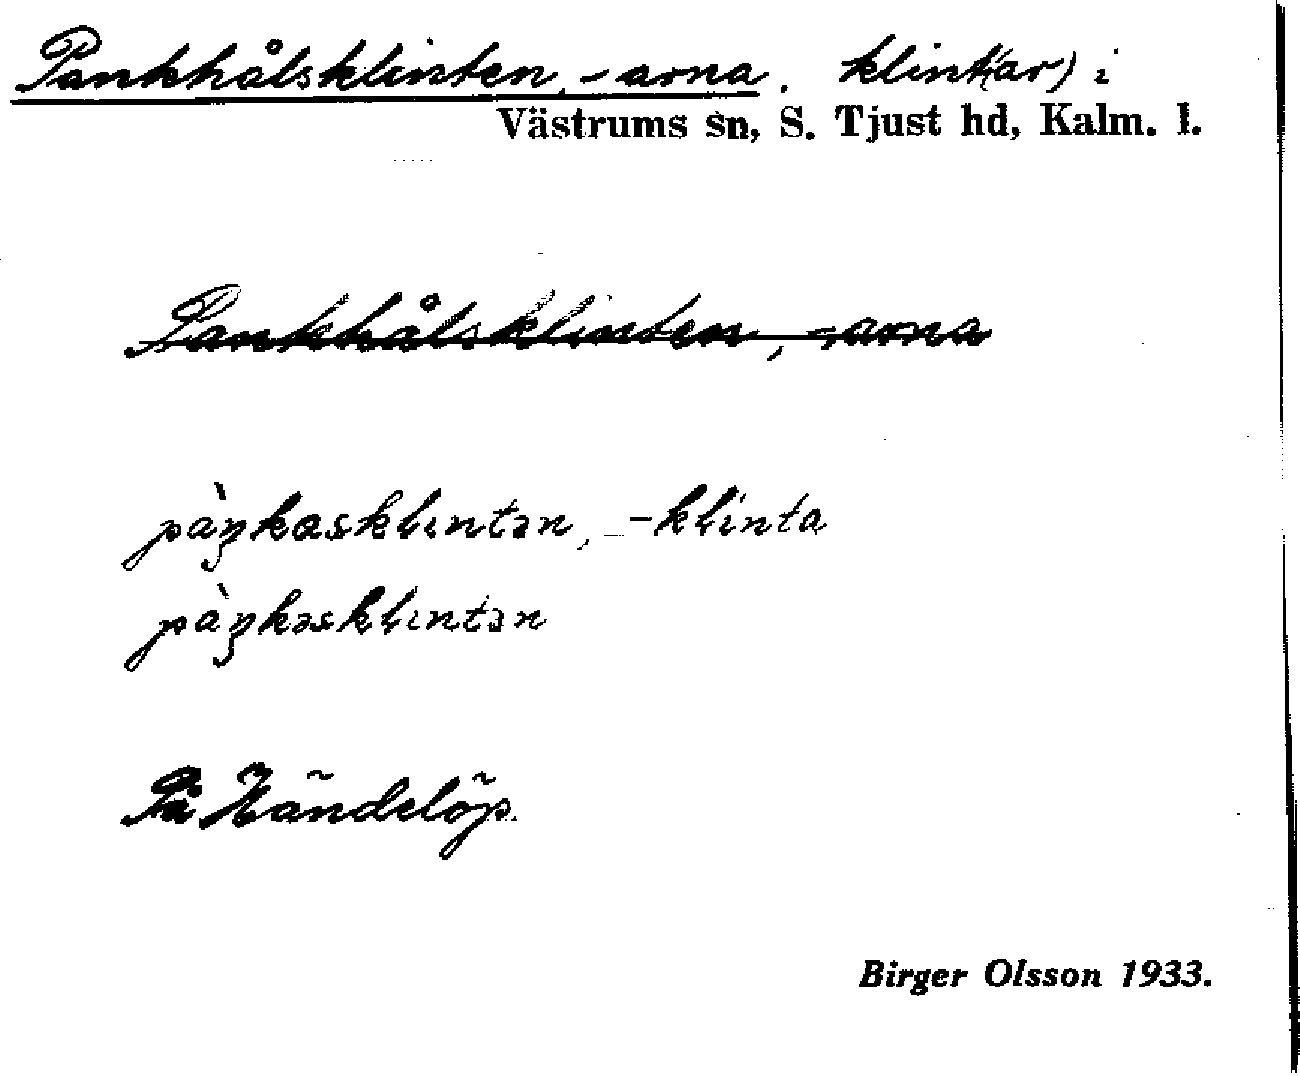 Pankhålsklinten, -arna. klint(ar) i
Västrums sn, S. Tjust hd, Kalm. l.
Pankhålsklinten, -arna
pàŋkasklıntən, -klinta
pàŋkəsklıntən
På Händelöp.
Birger Olsson 1933.